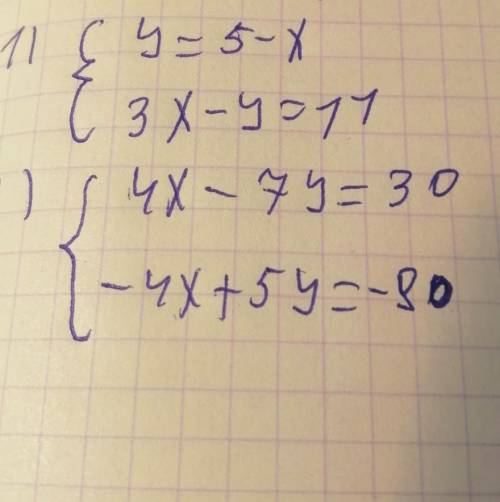 1) { y = 5 - x
3x - y = 11
) { 4x - 7y = 30
-4x + 5y = -90